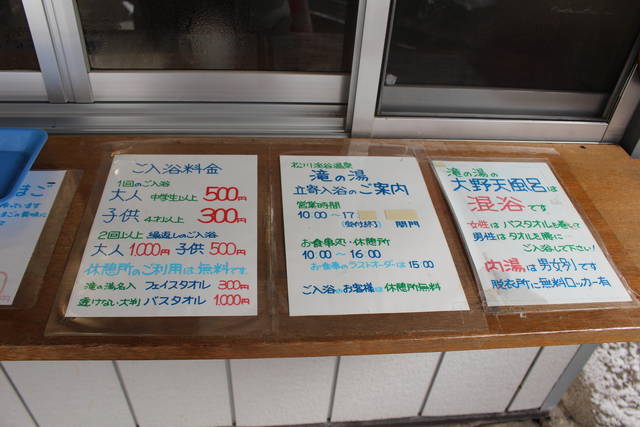 まご
ご入浴料金
1回のご入浴
大人 中学生以上 500円
子供 4才以上 300円
2回以上 繰返しのご入浴
大人 1,000円 子供 500円
休憩所のご利用は無料です
滝の湯名入 フェイスタオル 300円
透けない大判 バスタオル 1,000円
松川渓谷温泉
滝の湯
立寄入浴のご案内
営業時間
10:00 ~ 17:
(受付終了) 閉門
お食事処・休憩所
10:00 ~ 16:00
お食事のラストオーダーは 15:00
ご入浴のお客様は休憩所無料
滝の湯の
大野天風呂は
混浴です
女性はバスタオルを巻いて
男性はタオルを腰に…
ご入浴して下さい!
内湯は男女別です
脱衣所に無料ロッカー有